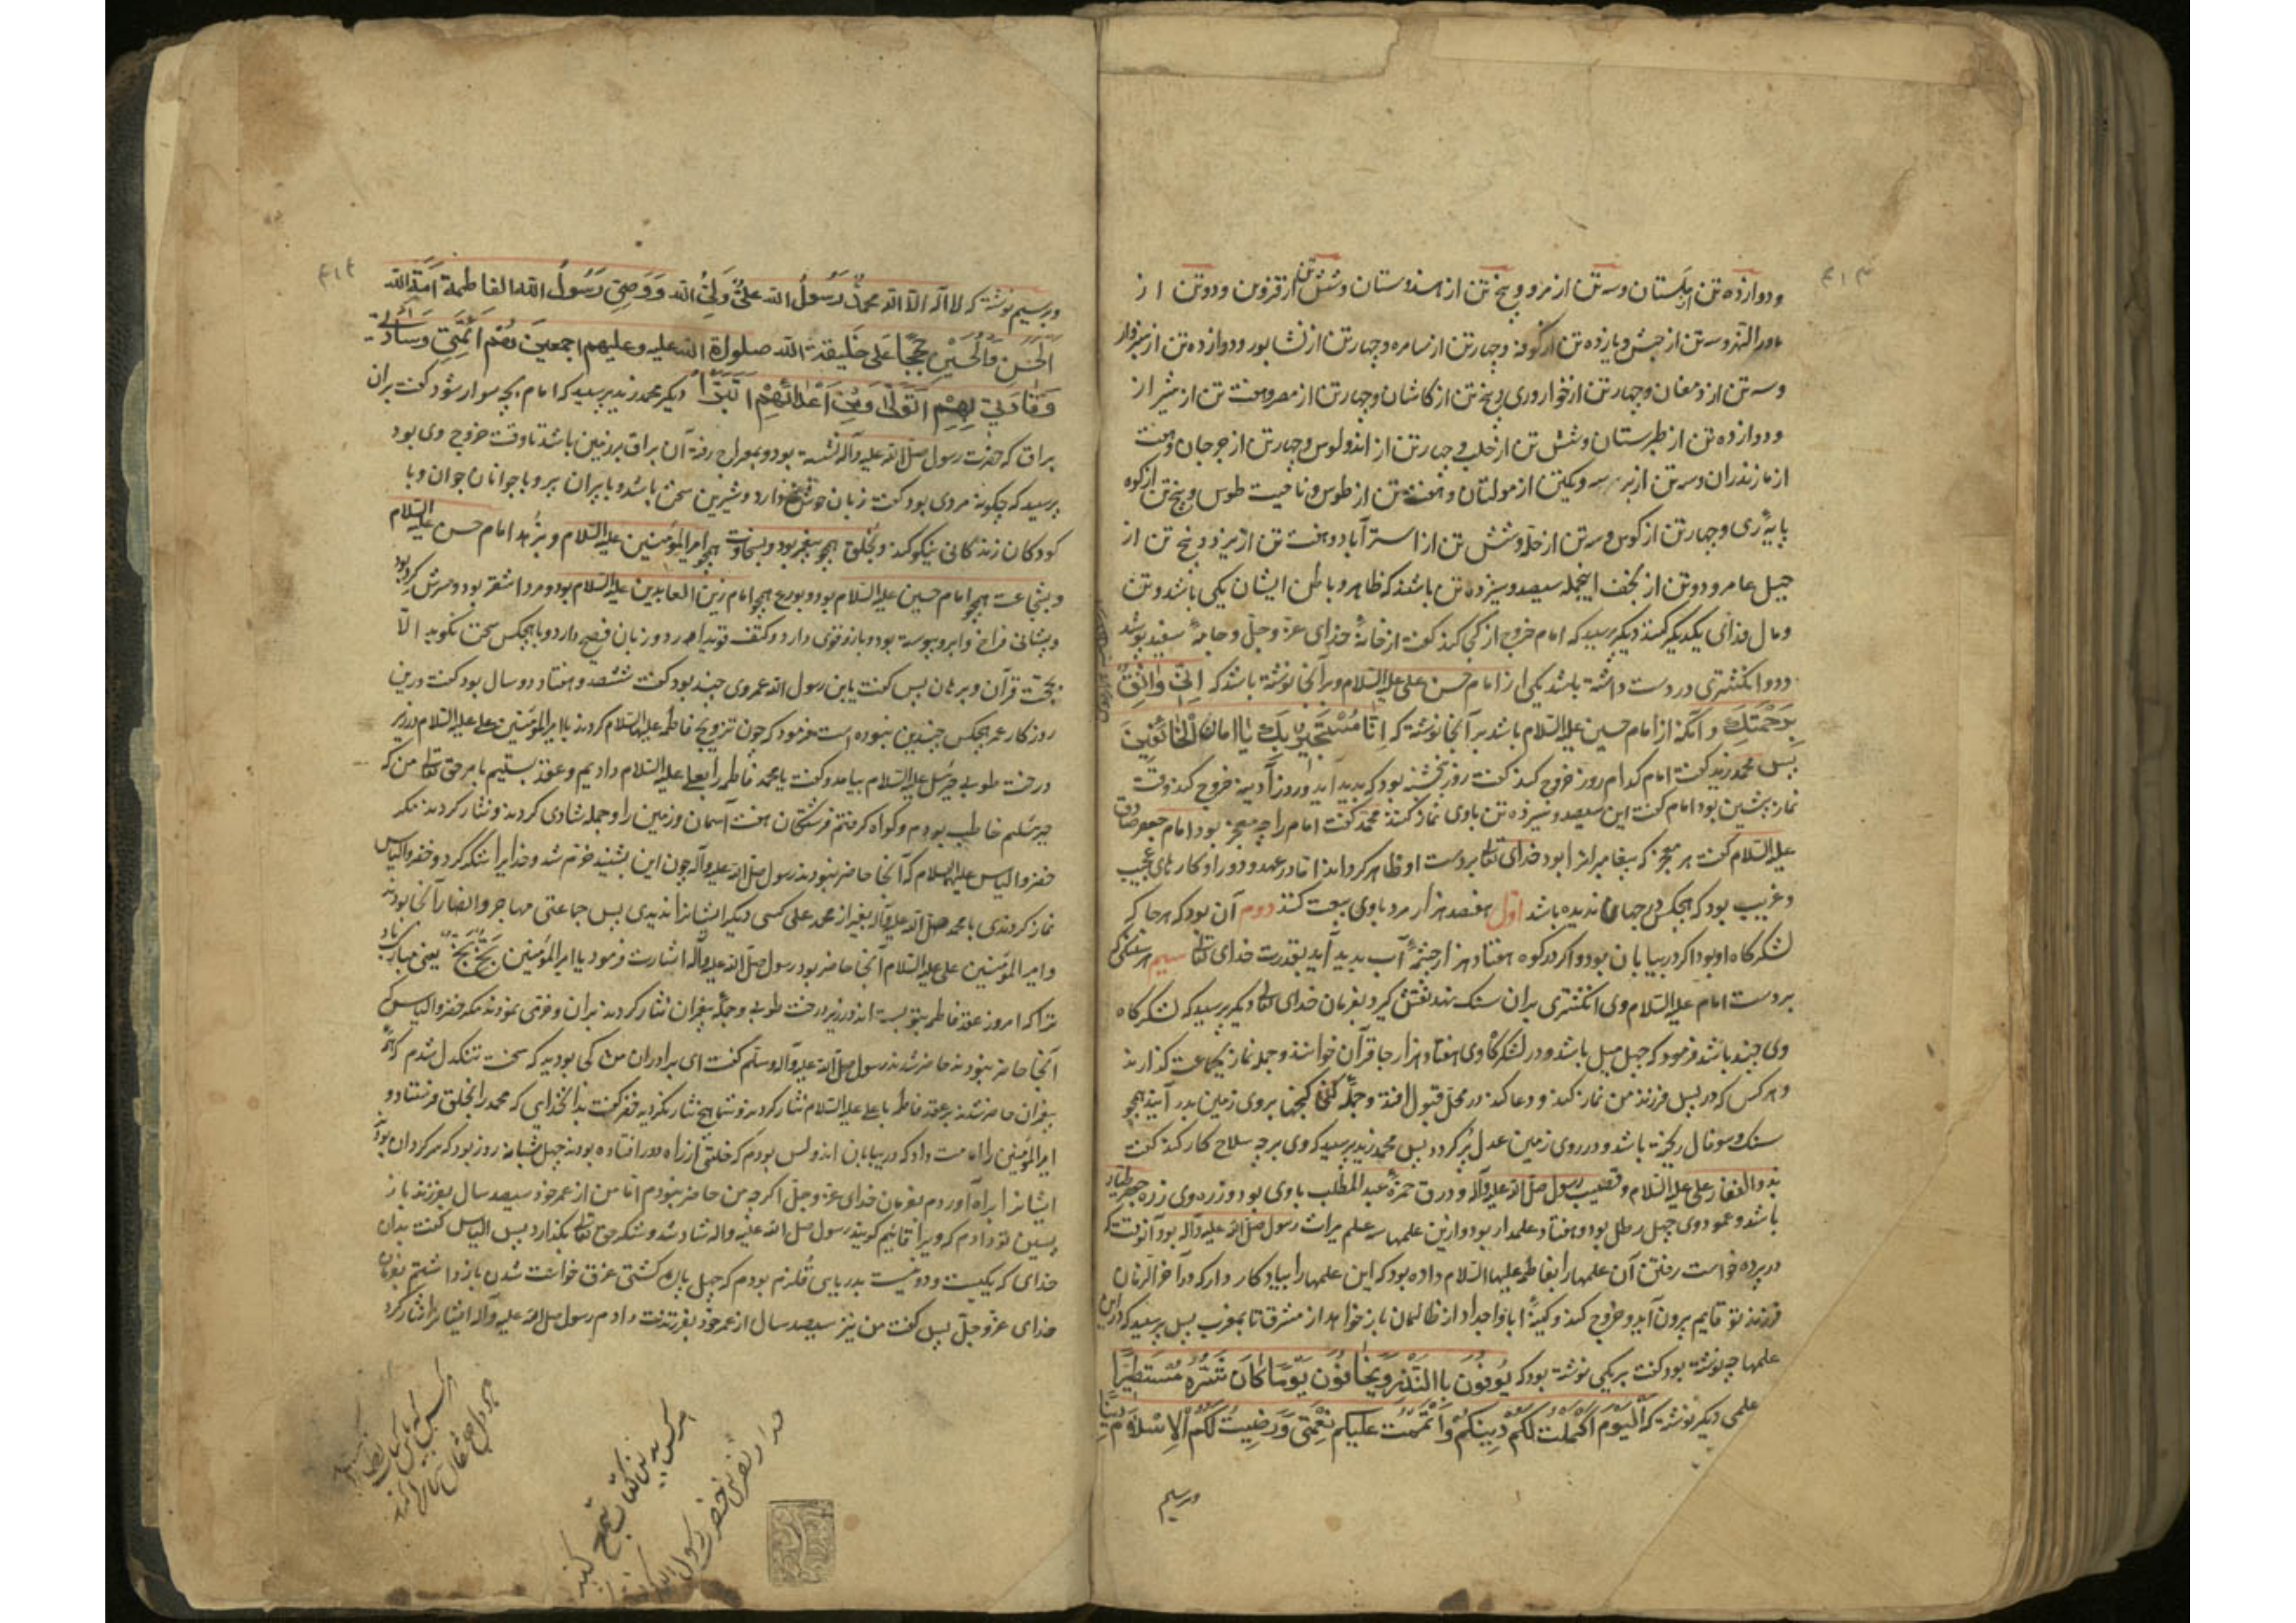 ۴۱۳
ودوازده تن از بلستان وسه تن از مرو و پنج تن از هندوستان وشش تن از قزوین ودوتن از
ماورالنهر وسه تن از حبش ویازده تن از کوفه وچهارتن از سامره وچهارتن از نشابور ودوازده تن از سبزوار
وسه تن از دمغان وچهارتن از خوار وری وپنج تن از کاشان وچهارتن از مصر وهفت تن از شیراز
ودوازده تن از طبرستان وشش تن از حلب وچهارتن از اندولوس وچهارتن از جرجان وهفت
از مازندران وسه تن از ویکتن از مولتان وهفت تن از طوس وناحیت طوس وپنج تن از کوه
پایهٔ ری وچهارتن از کوس وسه تن از حله وشش تن از استرآباد وهفت تن از تبریز وپنج تن از
جبل عامر ودوتن از نجف اینجمله سیصد وسیزده تن باشند که ظاهر وباطن ایشان یکی باشد وتن
ومال فدای یکدیگر کنند دیگر پرسید که امام خروج از کی کند گفت از خانهٔ خدای عزّ وجلّ وجامهٔ سفید پوشد
ودو انگشتری در دست داشته باشد یکی از امام حسن علی علیه السّلام وبر آنجا نوشته باشد که اِنّی وَاثِقٌ
بِرَحْمَتِكَ وآنکه از امام حسین علیه السّلام باشد بر آنجا نوشته که اِنّا مُسْتَجِیرٌ بِكَ یَا اَمَانَ الْخَائِفِینَ
پس محمد زید گفت امام کدام روز خروج کند گفت روز پنجشنبه بود که پدید آید وروز آدینه خروج کند وقت
نماز پیشین بود امام گفت این سیصد وسیزده تن باوی نماز کنند محمّد گفت امام را چه معجز بود امام جعفر صادق
علیه السّلام گفت هر معجز که پیغامبرانرا بود خدای تعالی بردست او ظاهر گرداند اما در عهد ودور او کارهای عجیب
وغریب بود که هیچکس در جهان ندیده باشد اوّل هفصد هزار مرد باوی بیعت کنند دوم آن بود که هرجا که
لشکرگاه او بود اگر در بیابان بود واگر در کوه هفتاد هزار چشمهٔ آب پدید آید بقدرت خدای تعالی سیم هر سنگی که
بردست امام علیه السّلام وی انگشتری بران سنک نهد نقش گیرد بفرمان خدای تعالی دیگر پرسید که لشکرگاه
وی چند باشد فرمود که چهل میل باشد ودر لشکرگاه وی هفتاد هزار جا قرآن خوانند وجمله نماز بجماعت گذارند
وهرکس که در پس فرزند من نماز کند ودعا کند در محلّ قبول افتد وجملهٔ گنجها بروی زمین بدر آیند همچو
سنک وسوفال ریخته باشد ودر روی زمین عدل پر گردد پس محمد زید پرسید که وی بر چه سلاح کار کند گفت
بذوالفقار علی علیه السّلام وقضیب رسول صلّی الله علیه وآله ودرق حمزهٔ عبدالمطّلب باوی بود وزره وی زره جعفر طیّار
باشد وعمود وی چهل رطل بود وهفتاد علمدار بود وازین علمها سه علم میراث رسول صلّی الله علیه وآله بود آنوقت که
در پرده خواست رفتن آن علمها را بفاطمه علیها السّلام داده بود که این علمها را بیادکار دار که در آخر الزمان
فرزند تو قایم برون آید وخروج کند وکینهٔ ابا واجداد از ظالمان بازخواهد از مشرق تا بمغرب پس پرسید که در این
علمها چه نوشته بود گفت بر یکی نوشته بود که یُوفُونَ بِاالنَّذْرِ وَیَخَافُونَ یَوْمًا کَانَ شَرُّهُ مُسْتَطِیرًا
علمی دیگر نوشته که اَلْیَوْمَ اَکْمَلْتُ لَکُمْ دِینَکُمْ وَاَتْمَمْتُ عَلَیْکُمْ نِعْمَتِی وَرَضِیتُ لَکُمُ الْاِسْلَامَ دِینًا
وبرسیم
۴۱۴
وبرسیم نوشته که لا اله الّا الله محمّدٌ رَسُولُ الله عَلیٌّ وَلِیُّ الله وَوَصِیّ رَسُولُ الله الفاطمة اَمَةُ الله
الحَسَنِ وَالْحُسَیْنِ حُجَجًا عَلَی خَلِیقَةِ الله صلواة الله علیه وعلیهم اجمعین هُمْ اَئِمَّتِی وَسَادَتِی
وَقَادَتِی بِهِمْ اَتَوَلّٰی وَمِنْ اَعْدَائِهِمْ اَتَبَرَّأُ دیگر محمد زید پرسید که امام بر چه سوار شود گفت بران
براق که حضرت رسول صلّی الله علیه وآله نشسته بود وبمعراج رفته آن براق بر زمین باشد تا وقت خروج وی بود
پرسید که چکونه مردی بود گفت زبان خوش دارد وشیرین سخن باشد وبا پیران پیر وبا جوانان جوان وبا
کودکان زندکانی نیکو کند وبخلق همچو پیغمبر بود وبسخاوت همچو امیرالمؤمنین علیه السّلام وبزهد امام حسن علیه السّلام
وبشجاعت همچو امام حسین علیه السّلام بود وبورع همچو امام زین العابدین علیه السّلام بود ومرد اشقر بود وسرش گرد بود
وپیشانی فراخ وابرو پیوسته بود وبازو قوی دارد وکتف قوی دارد وزبان فصیح دارد وبا هیچکس سخن نگوید الّا
بحجّت قرآن وبرهان پس گفت یابن رسول الله عمر وی چند بود گفت ششصد وهفتاد ودوسال بود گفت درین
روزکار عمر هیچکس چندین نبوده است فرمود که چون تزویج فاطمه علیها السّلام کردند باامیرالمؤمنین علی علیه السّلام در زیر
درخت طوبی جبرئیل علیه السّلام بیامد وگفت یا محمد فاطمه را بعلی علیه السّلام دادیم وعقد بستیم بامر حق تعالی من که
جبرئیلم خاطب بودم وکواه گرفتم فرشتکان هفت آسمان وزمین را وجمله شادی کردند ونثار کردند مکر
خضر والیاس علیهما السّلام که آنجا حاضر نبودند رسول صلّی الله علیه وآله چون این بشنید خرّم شد وخدایرا شکر کرد وخضر والیاس
نماز کردندی با محمد صلّی الله علیه وآله بغیر از محمد علی کسی دیگر ایشانرا ندیدی پس جماعتی مهاجر وانصار آنجا بودند
وامیرالمؤمنین علی علیه السّلام آنجا حاضر بود رسول صلّی الله علیه وآله اشارت فرمود یا امیرالمؤمنین بَخّ بَخّ یعنی مبارک باد
ترا که امروز عقد فاطمه بتو بسته اند در زیر درخت طوبی وجمله پیغبران نثار کردند بران وخرّمی نمودند مکر خضر والیاس که
آنجا حاضر نبودند حاضر شدند رسول صلّی الله علیه وآله وسلّم گفت ای برادران من کی بودید که سخت تنکدل شدم که همهٔ
پیغبران حاضر شدند بر عقد فاطمه با علی علیه السّلام نثار کردند وشما هیچ نثار نکردید خضر گفت بدان خدایی که محمد را بخلق فرستاد و
امیرالمؤمنین را امامت داد که در بیابان اندولس بودم که خلقی از راه دور افتاده بودند چهل شبانه روز بود که سرکردان بودند
ایشانرا براه آوردم بفرمان خدای عزّ وجلّ اگرچه من حاضر نبودم اما من از عمر خود سیصد سال بفرزند باز
پسین تو دادم که ویرا قائیم گویند رسول صلّی الله علیه واله شاد شد وشکر حق تعالی بگذارد پس الیاس گفت بدان
خدای که یکیست ودو نیست بدریای قلزم بودم که چهل پاره کشتی غرق خواست شدن باز داشتم بفرمان
خدای عزّ وجلّ پس گفت من نیز سیصد سال از عمر خود بفرزندت دادم رسول صلّی الله علیه وآله ایشانرا نثار کرد
هرکس بدین کتاب طمع کند